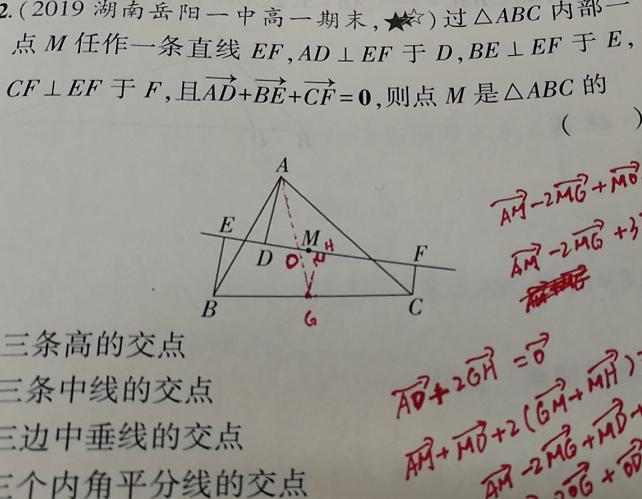 2.(2019 湖南岳阳一中高一期末,★★☆)过△ABC 内部一
点 M 任作一条直线 EF,AD⊥EF 于 D,BE⊥EF 于 E,
CF⊥EF 于 F,且AD+BE+CF=0,则点 M 是△ABC 的
( )
A
E
M
H
F
D
O
B
G
C
三条高的交点
三条中线的交点
三边中垂线的交点
三个内角平分线的交点
AM-2MG+MD
AM-2MG+3
AD+2GH=0
AM+MD+2(GM+MH)=
AM-2MG+MD+